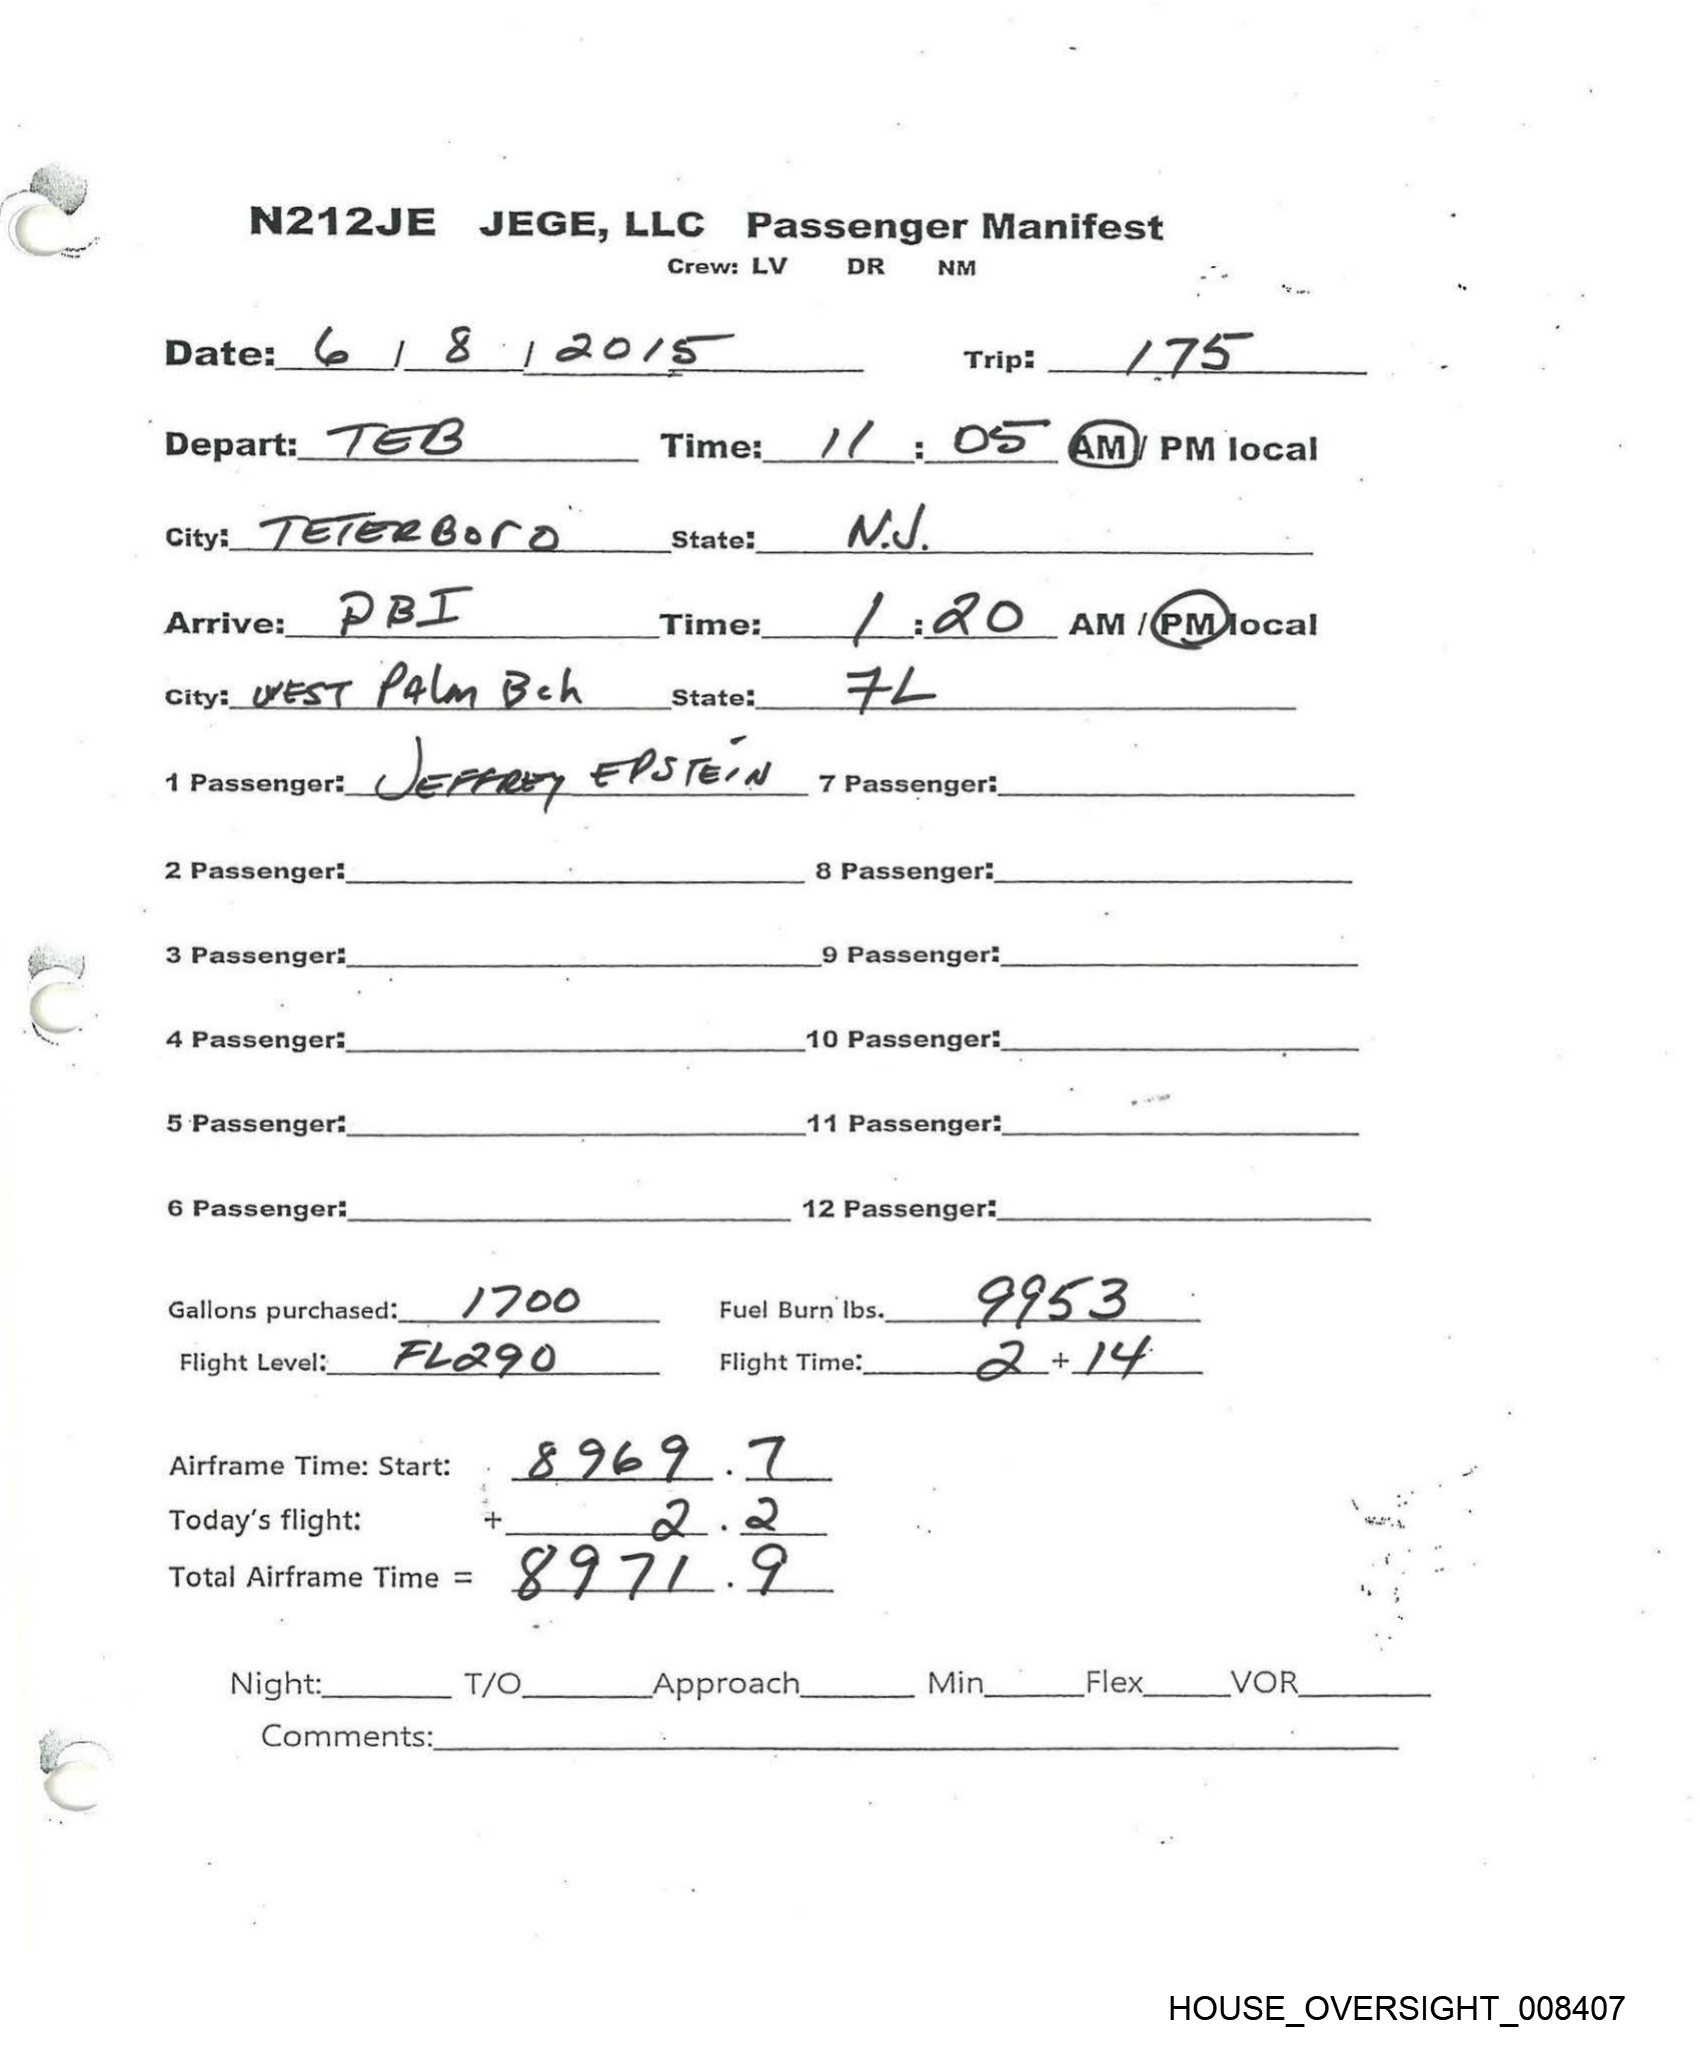 N212JE JEGE, LLC Passenger Manifest
Crew: LV DR NM
Date: 6 / 8 / 2015 Trip: 175
Depart: TEB Time: 11 : 05 AM / PM local
City: TETERBORO State: N.J.
Arrive: PBI Time: 1 : 20 AM / PM local
City: WEST PAlm Bch State: FL
1 Passenger: JEFFREY EPSTEIN 7 Passenger:
2 Passenger: 8 Passenger:
3 Passenger: 9 Passenger:
4 Passenger: 10 Passenger:
5 Passenger: 11 Passenger:
6 Passenger: 12 Passenger:
Gallons purchased: 1700 Fuel Burn lbs. 9953
Flight Level: FL290 Flight Time: 2 + 14
Airframe Time: Start: 8969.7
Today's flight: + 2.2
Total Airframe Time = 8971.9
Night: T/O Approach Min Flex VOR
Comments:
HOUSE_OVERSIGHT_008407